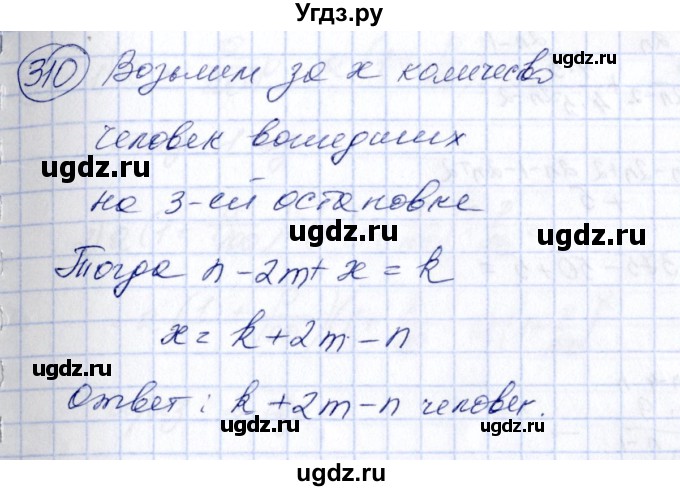 Угдз.ру
310 Возьмем за x количесво
ugdz.ru
человек вошедших
ugdz.ru
ugdz.ru
на 3-ей остановке
ugdz.ru
Тогда n - 2m + x = k
ugdz.ru
x = k + 2m - n
ugdz.ru
ugdz.ru
Ответ: k + 2m - n человек.
ugdz.ru
ugdz.ru